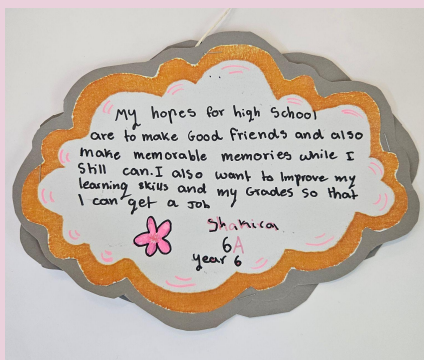 My hopes for high school
are to make Good friends and also
make memorable memories while I
Still can. I also want to Improve my
learning skills and my Grades so that
I can get a Job
6A
year 6